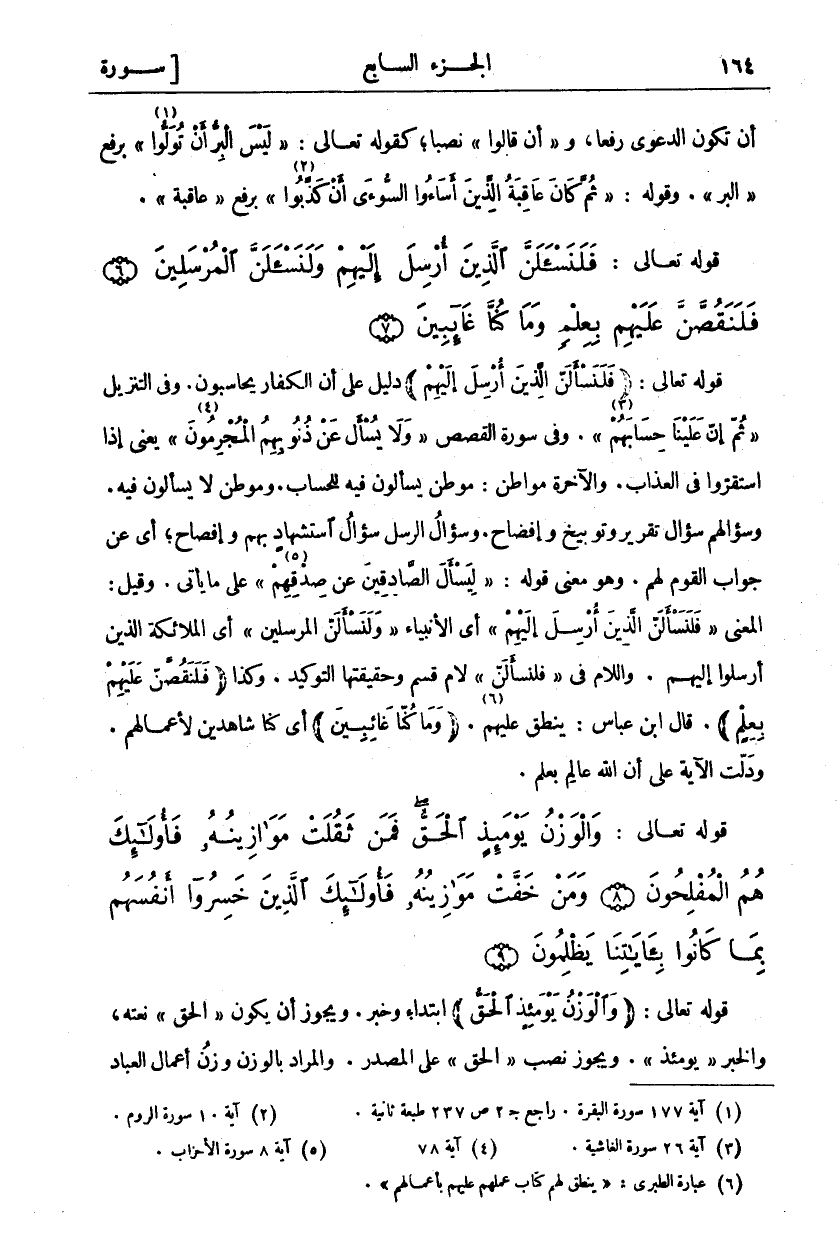 ١٦٤ الجـزء السـابع [ سـورة
أن تكون الدعوى رفعا، و « أن قالوا » نصبا؛ كقوله تعـالى : « لَيْسَ الْبِرُّ أَنْ تُوَلُّوا (١) » برفع
« البر » . وقوله : « ثُمَّ كَانَ عَاقِبَةُ الَّذِينَ أَسَاءُوا السُّوءَى أَنْ كَذَّبُوا (٢) » برفع « عاقبة » .
قوله تعـالى : فَلَنَسْـَٔلَنَّ ٱلَّذِينَ أُرْسِلَ إِلَيْهِمْ وَلَنَسْـَٔلَنَّ ٱلْمُرْسَلِينَ ﴿٦﴾
فَلَنَقُصَّنَّ عَلَيْهِم بِعِلْمٍ وَمَا كُنَّا غَآئِبِينَ ﴿٧﴾
قوله تعالى : ﴿ فَلَنَسْأَلَنَّ الَّذِينَ أُرْسِلَ إِلَيْهِمْ ﴾ دليل على أن الكفار يحاسبون. وفى التنزيل
« ثُمَّ إِنَّ عَلَيْنَا حِسَابَهُمْ (٣) » . وفى سورة القصص « وَلَا يُسْأَلُ عَنْ ذُنُوبِهِمُ الْمُجْرِمُونَ (٤) » يعنى إذا
استقرّوا فى العذاب. والآخرة مواطن : موطن يسألون فيه للحساب. وموطن لا يسألون فيه.
وسؤالهم سؤال تقرير وتوبيخ و إفضاح. وسؤالُ الرسل سؤالُ ٱستشهادٍ بهم و إفصاح؛ أى عن
جواب القوم لهم . وهو معنى قوله : « لِيَسْأَلَ الصَّادِقِينَ عن صِدْقِهِمْ (٥) » على ما يأتى . وقيل :
المعنى « فَلَنَسْأَلَنَّ الَّذِينَ أُرْسِـلَ إِلَيْهِمْ » أى الأنبياء « وَلَنَسْأَلَنَّ المرسلين » أى الملائكة الذين
أرسلوا إليهـم . واللام فى « فلنسألَنّ » لام قسم وحقيقتها التوكيد . وكذا ﴿ فَلَنَقُصَّنَّ عَلَيْهِمْ
بِعِلْمٍ ﴾ . قال ابن عباس : ينطق عليهم (٦) . ﴿ وَمَا كُنَّا غَائِبِـينَ ﴾ أى كنا شاهدين لأعمـالهم .
ودَلّت الآية على أن الله عالِم بعلم .
قوله تعـالى : وَٱلْوَزْنُ يَوْمَئِذٍ ٱلْحَقُّ ۚ فَمَن ثَقُلَتْ مَوَٰزِينُهُۥ فَأُو۟لَٰٓئِكَ
هُمُ ٱلْمُفْلِحُونَ ﴿٨﴾ وَمَنْ خَفَّتْ مَوَٰزِينُهُۥ فَأُو۟لَٰٓئِكَ ٱلَّذِينَ خَسِرُوٓا أَنفُسَهُم
بِمَـا كَانُوا بِـَٔايَٰتِنَا يَظْلِمُونَ ﴿٩﴾
قوله تعالى : ﴿ وَٱلْوَزْنُ يَوْمَئِذٍ ٱلْحَقُّ ﴾ ابتداء وخبر . ويجوز أن يكون « الحق » نعته،
والخبر « يومئذ » . ويجوز نصب « الحق » على المصدر . والمراد بالوزن وزنُ أعمال العباد
(١) آية ١٧٧ سورة البقرة . راجع جـ ٢ ص ٢٣٧ طبعة ثانية . (٢) آية ١٠ سورة الروم .
(٣) آية ٢٦ سورة الغاشية . (٤) آية ٧٨ (٥) آية ٨ سورة الأحزاب .
(٦) عبارة الطبرى : « ينطق لهم كتاب عملهم عليهم بأعمـالهم » .